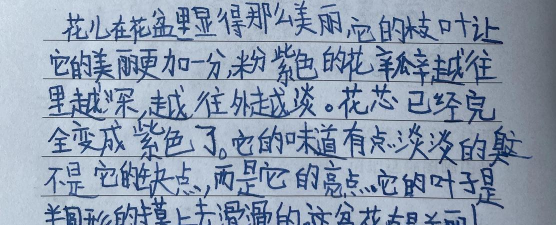 花儿在花盆里显得那么美丽,它的枝叶让
它的美丽更加一分,粉紫色的花瓣越往
里越深,越往外越淡。花芯已经完
全变成紫色了。它的味道有点淡淡的臭
不是它的缺点,而是它的亮点。它的叶子是
半圆形的摸上去滑滑的,这盆花真美丽!